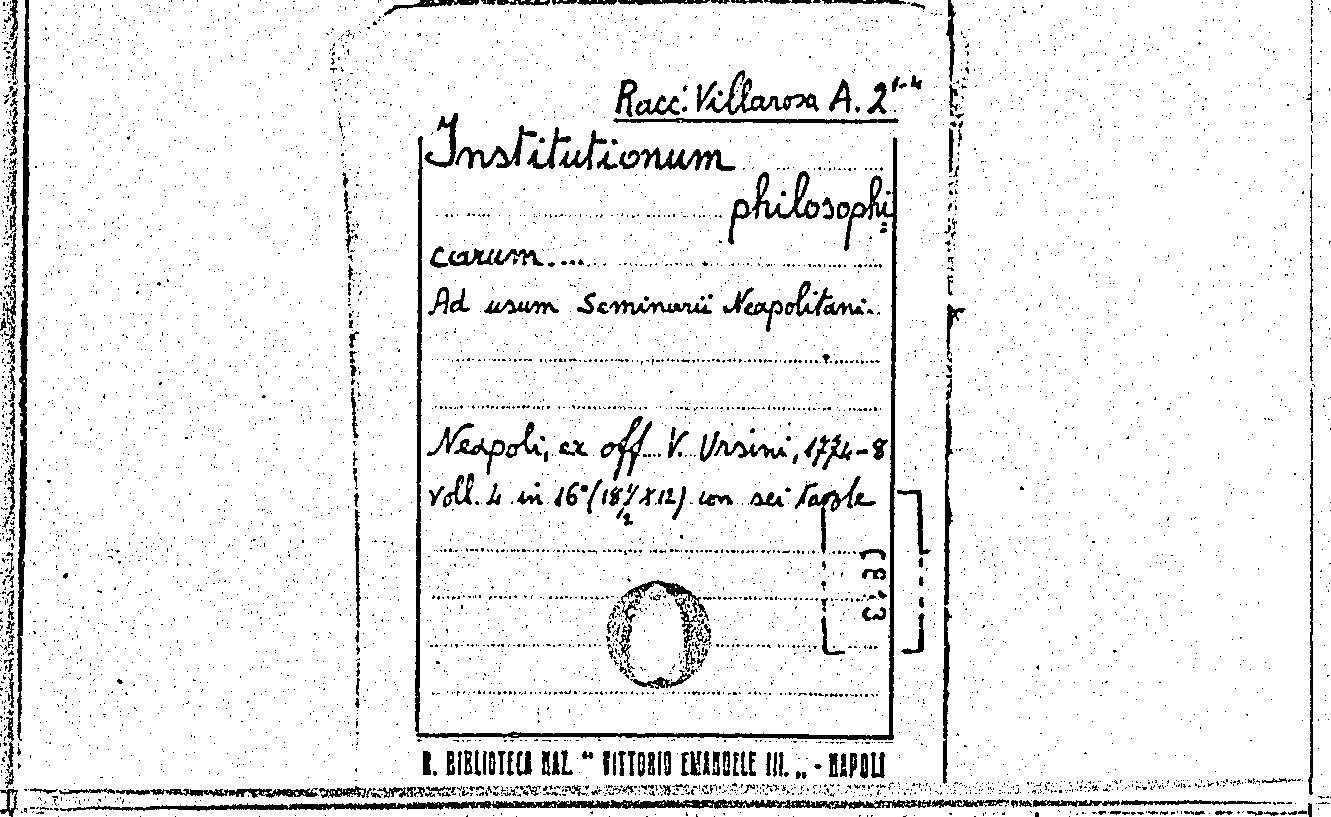 Racc. Villarosa A. 2¹⁻⁴
Institutionum
philosophi
carum....
Ad usum Seminarii Neapolitani.
Neapoli, ex off. V. Ursini, 1774-8
voll. 4 in 16° (18½ x 12) con sei tavole
R. BIBLIOTECA NAZ. “ VITTORIO EMANUELE III. „ - NAPOLI